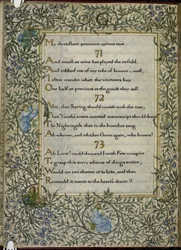 My threadbare penitence apieces tore.
71
And much as wine has played the infidel,
And robbed me of my robe of honour, well,
I often wonder what the vintners buy
One half so precious as the goods they sell.
72
Alas, that Spring should vanish with the rose,
That Youth's sweet-scented manuscript should close
The Nightingale that in the branches sang
Ah whence, and whither flown again, who knows!
73
Ah Love! could thou and I with Fate conspire
To grasp this sorry scheme of things entire,
Would not we shatter it to bits, and then
Remould it nearer to the heart's desire?